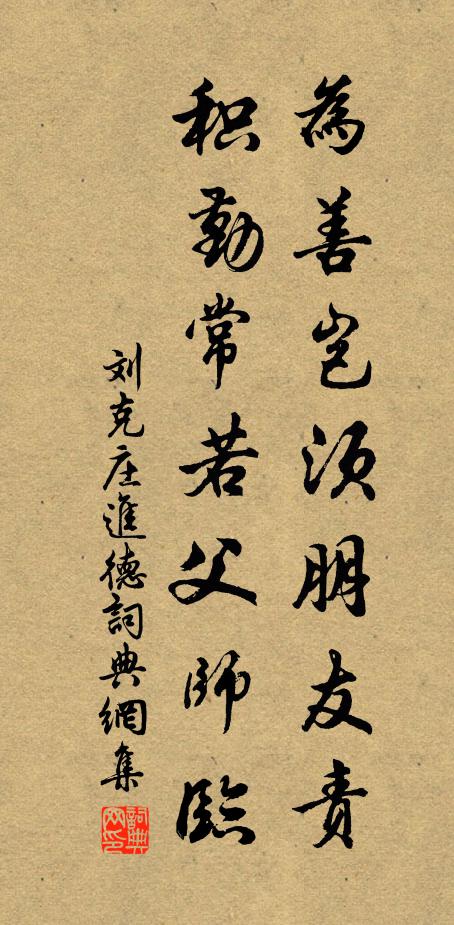 為善岂须朋友责
积勤常若父師臨
刘克庄進德詞典網集
詞典网印